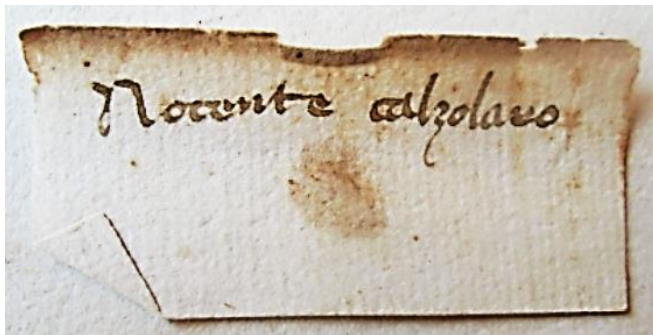 Nocente calzolaro